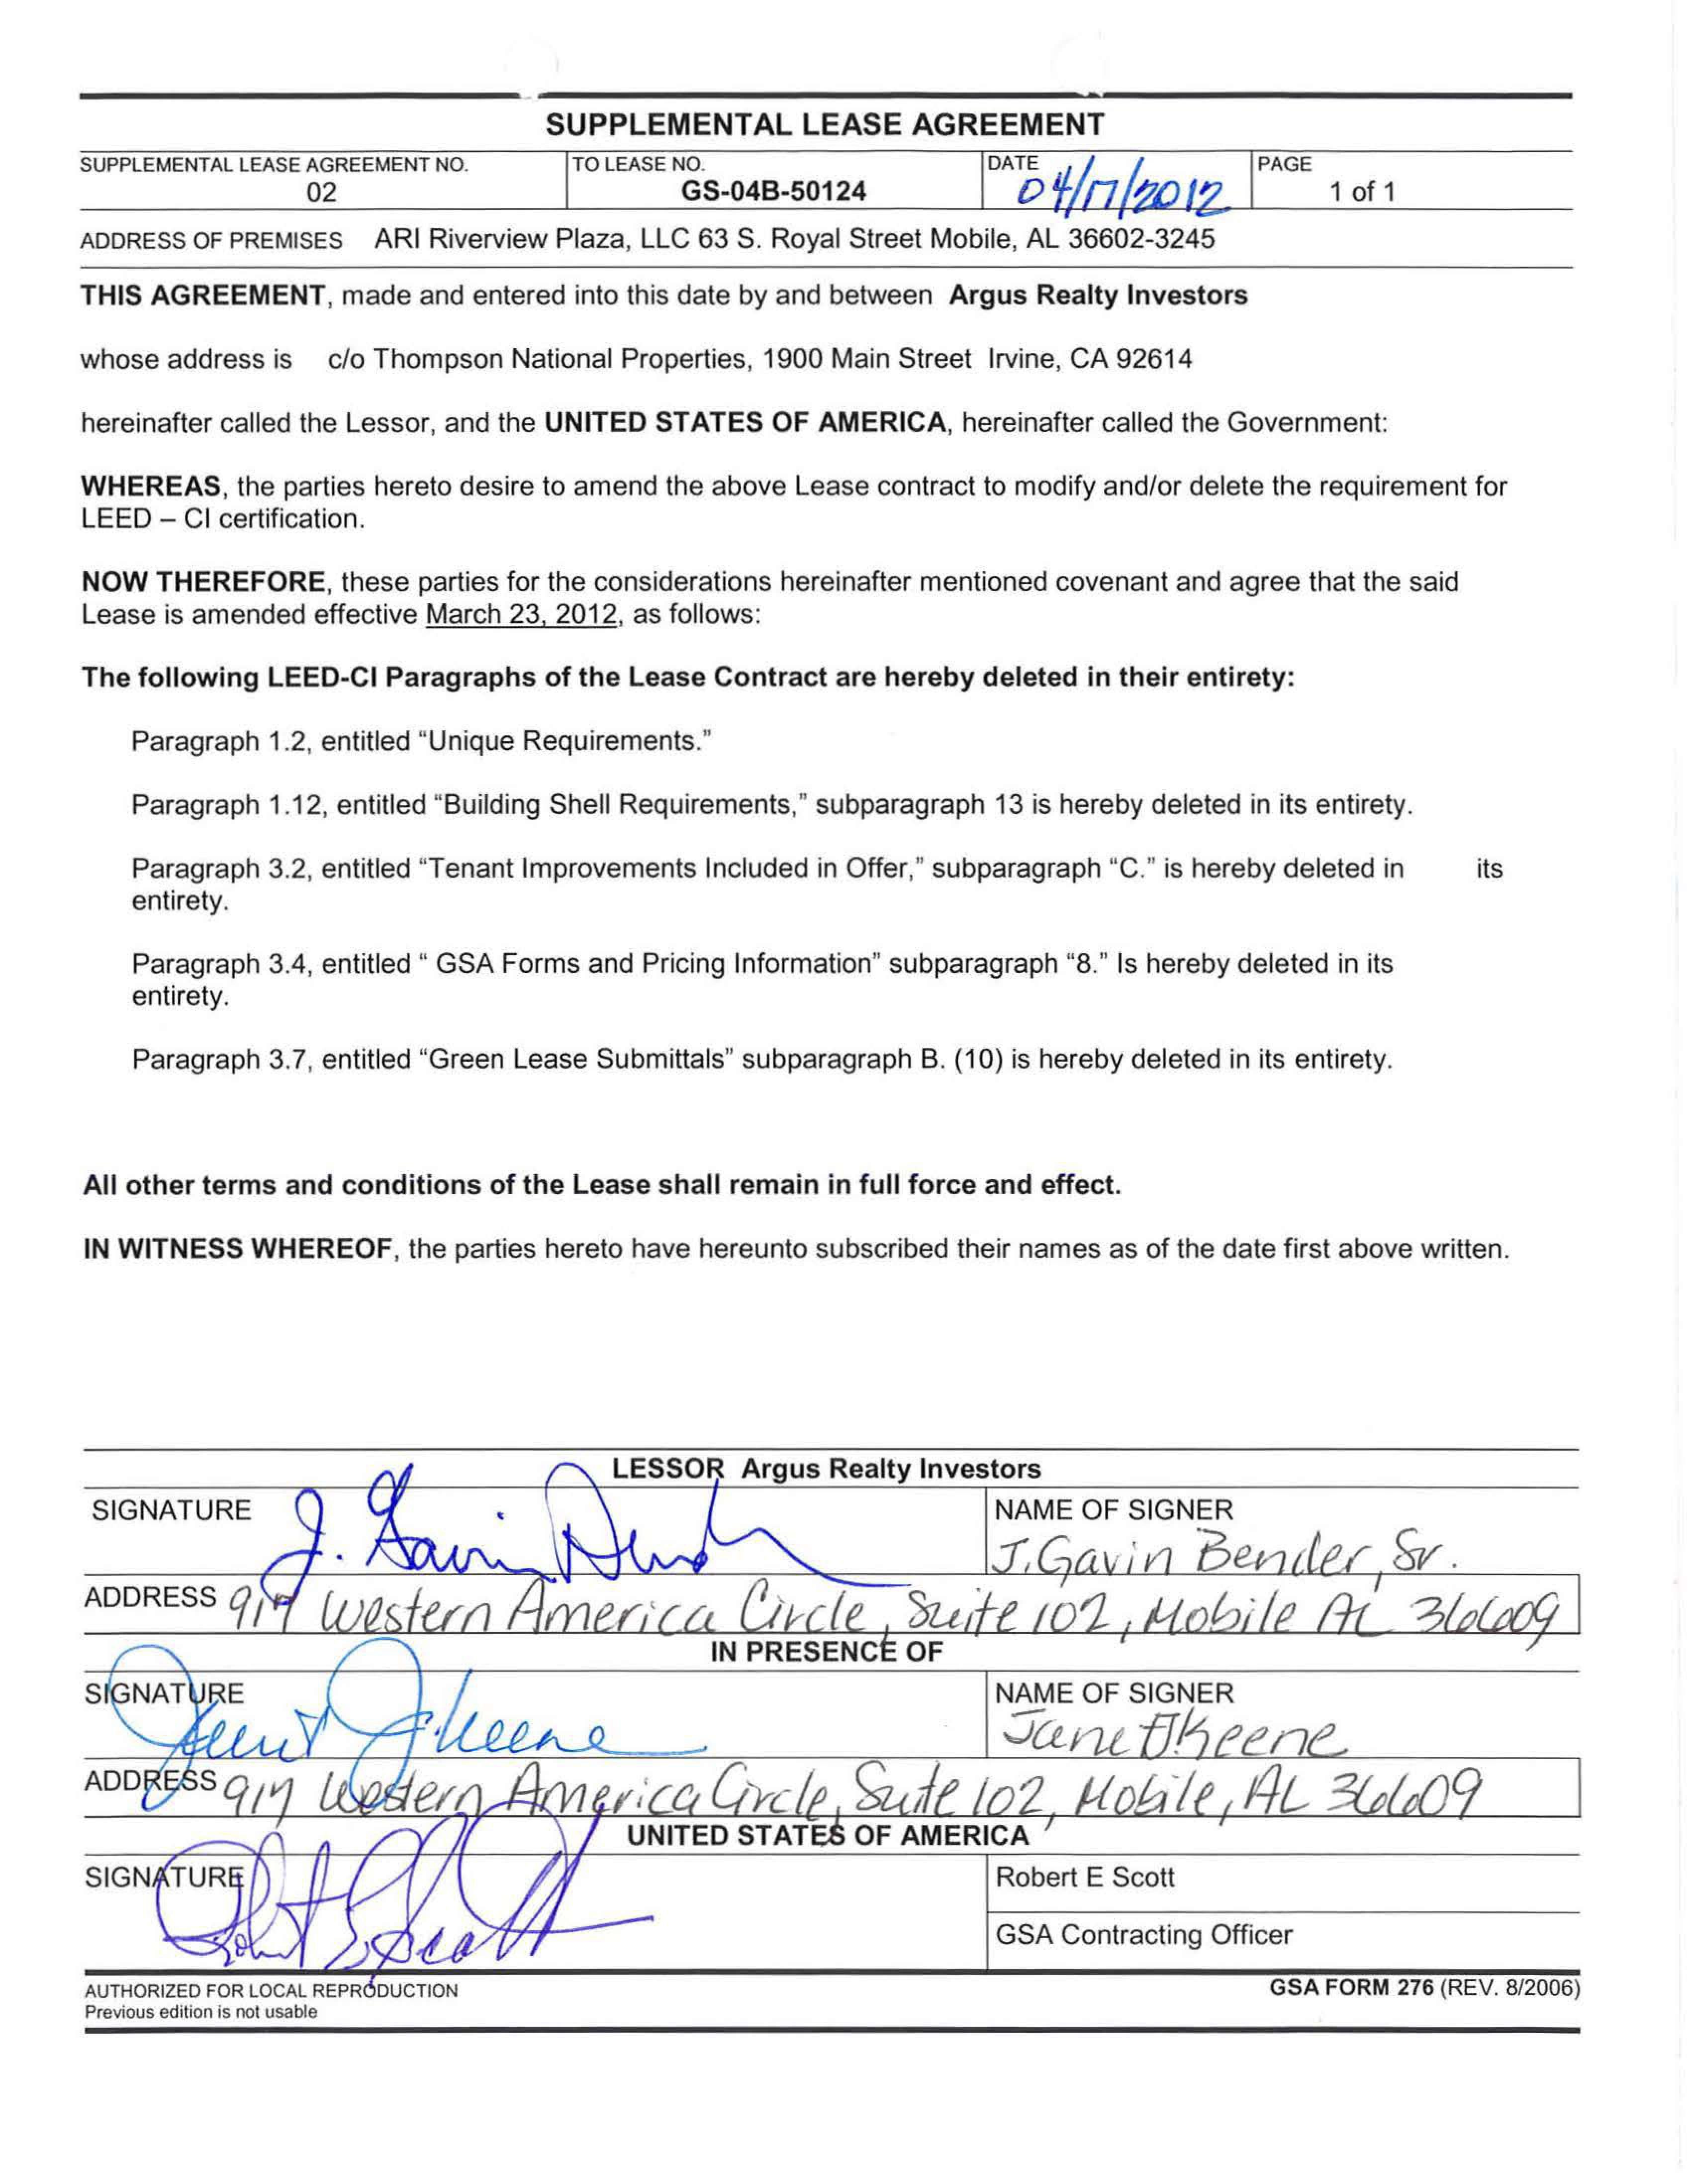 SUPPLEMENTAL LEASE AGREEMENT
SUPPLEMENTAL LEASE AGREEMENT NO. TO LEASE NO. DATE PAGE
02 GS-04B-50124 04/17/2012 1 of 1
ADDRESS OF PREMISES ARI Riverview Plaza, LLC 63 S. Royal Street Mobile, AL 36602-3245
THIS AGREEMENT, made and entered into this date by and between Argus Realty Investors
whose address is c/o Thompson National Properties, 1900 Main Street Irvine, CA 92614
hereinafter called the Lessor, and the UNITED STATES OF AMERICA, hereinafter called the Government:
WHEREAS, the parties hereto desire to amend the above Lease contract to modify and/or delete the requirement for
LEED – CI certification.
NOW THEREFORE, these parties for the considerations hereinafter mentioned covenant and agree that the said
Lease is amended effective March 23, 2012, as follows:
The following LEED-CI Paragraphs of the Lease Contract are hereby deleted in their entirety:
Paragraph 1.2, entitled “Unique Requirements.”
Paragraph 1.12, entitled “Building Shell Requirements,” subparagraph 13 is hereby deleted in its entirety.
Paragraph 3.2, entitled “Tenant Improvements Included in Offer,” subparagraph “C.” is hereby deleted in its
entirety.
Paragraph 3.4, entitled “ GSA Forms and Pricing Information” subparagraph “8.” Is hereby deleted in its
entirety.
Paragraph 3.7, entitled “Green Lease Submittals” subparagraph B. (10) is hereby deleted in its entirety.
All other terms and conditions of the Lease shall remain in full force and effect.
IN WITNESS WHEREOF, the parties hereto have hereunto subscribed their names as of the date first above written.
LESSOR Argus Realty Investors
SIGNATURE J. Gavin Bender NAME OF SIGNER
J. Gavin Bender, Sr.
ADDRESS 917 Western America Circle, Suite 102, Mobile AL 36609
IN PRESENCE OF
SIGNATURE NAME OF SIGNER
Keene
ADDRESS 917 Western America Circle, Suite 102, Mobile, AL 36609
UNITED STATES OF AMERICA
SIGNATURE Robert E Scott Robert E Scott
GSA Contracting Officer
AUTHORIZED FOR LOCAL REPRODUCTION GSA FORM 276 (REV. 8/2006)
Previous edition is not usable